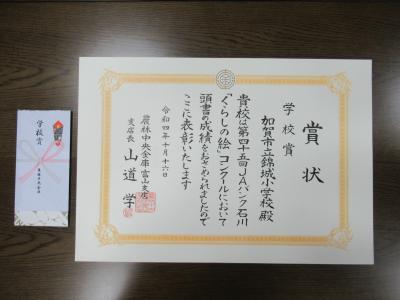 賞状
学校賞
加賀市立錦城小学校殿
貴校は第四十五回JAバンク石川
「くらしの絵」コンクールにおいて
頭書の成績をおさめられましたので
ここに表彰いたします
令和四年十月十六日
農林中央金庫富山支店
支店長 山道学
学校賞